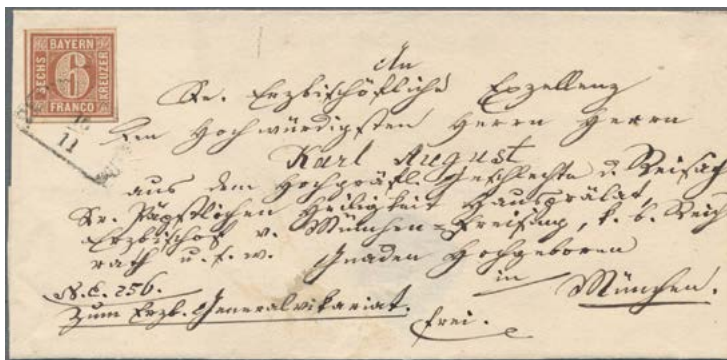 BAYERN
SECHS
6
KREUZER
FRANCO
11
An
Sr. Erzbischöfliche Exzellenz
den Hochwürdigsten Herrn Herrn
Karl August
aus dem Hochgräfl. Geschlechte d. Reisach
Sr. Päpstlichen Heiligkeit Hausprälat,
Erzbischof v. München-Freising, k. b. Reich
rath u. s. w. Gnaden Hochgeboren
in
München.
N.E. 256.
Zum Erzb. Generalvikariat.
frei.